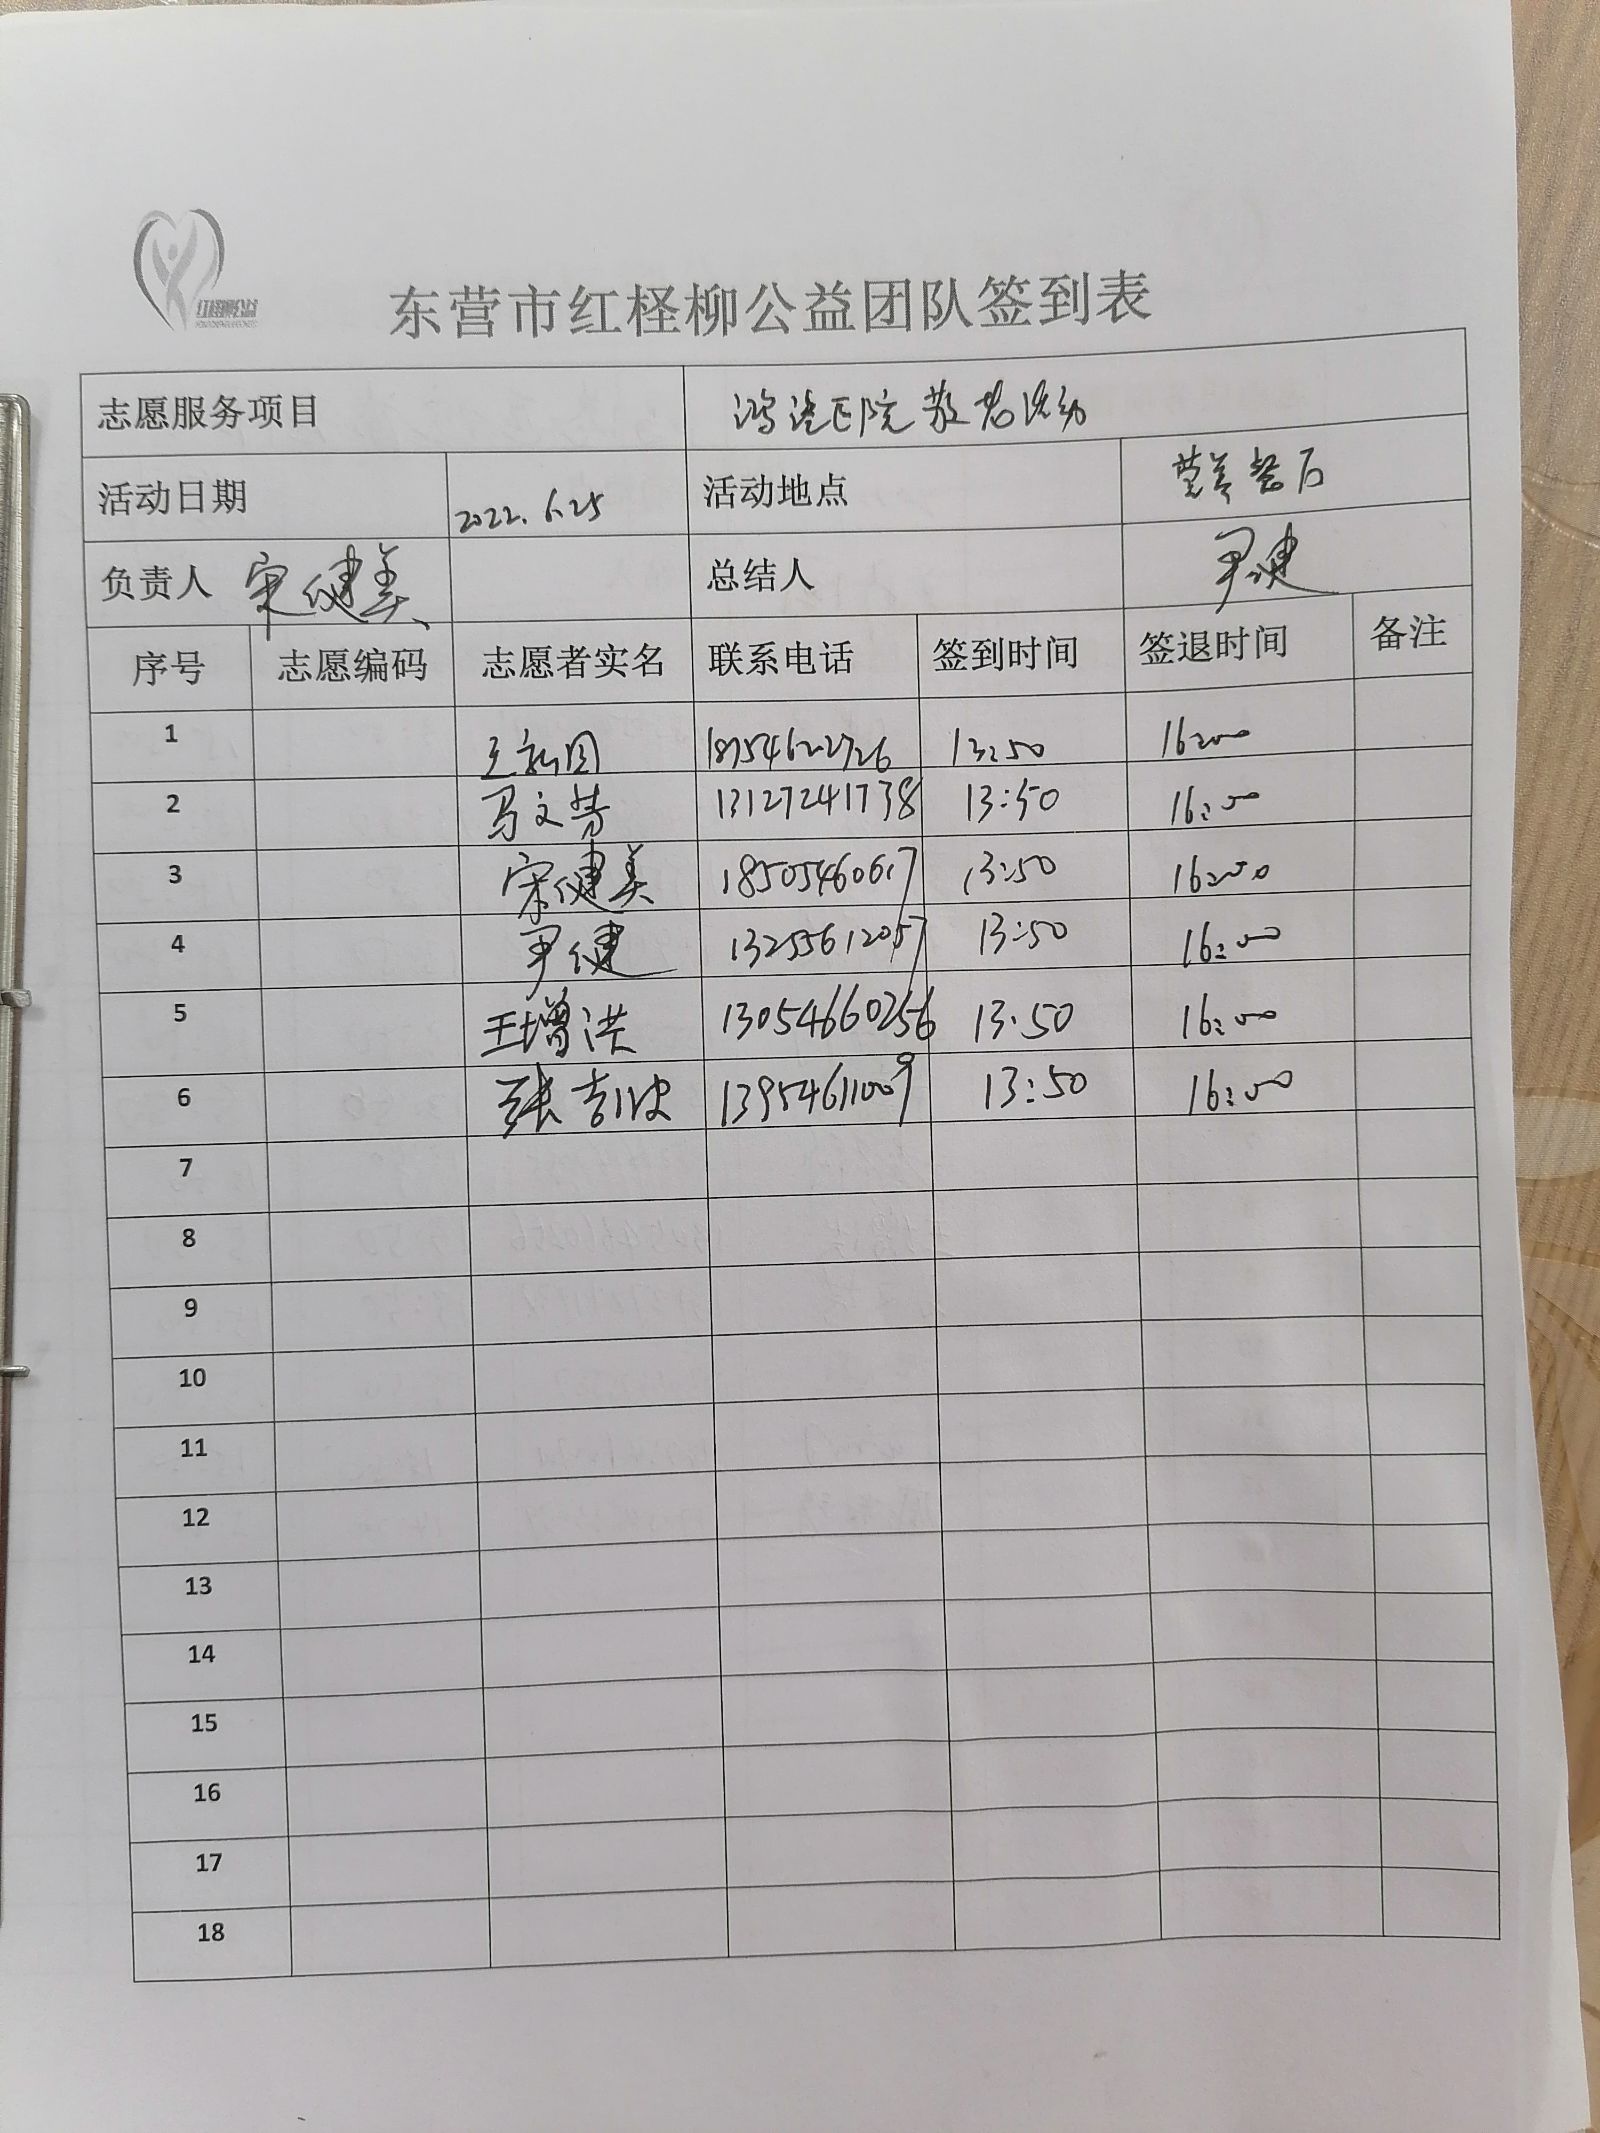 红柽柳公益
东营市红柽柳公益团队签到表
志愿服务项目 医院 活动
活动日期 2022.6.25 活动地点
负责人 宋健美 总结人 尹健
序号 志愿编码 志愿者实名 联系电话 签到时间 签退时间 备注
1 13:50 16:00
2 马文芳 13127241738 13:50 16:00
3 宋健美 18505460617 13:50 16:00
4 尹健 13255612057 13:50 16:00
5 王增洪 13054660256 13:50 16:00
6 张 13954611009 13:50 16:00
7
8
9
10
11
12
13
14
15
16
17
18